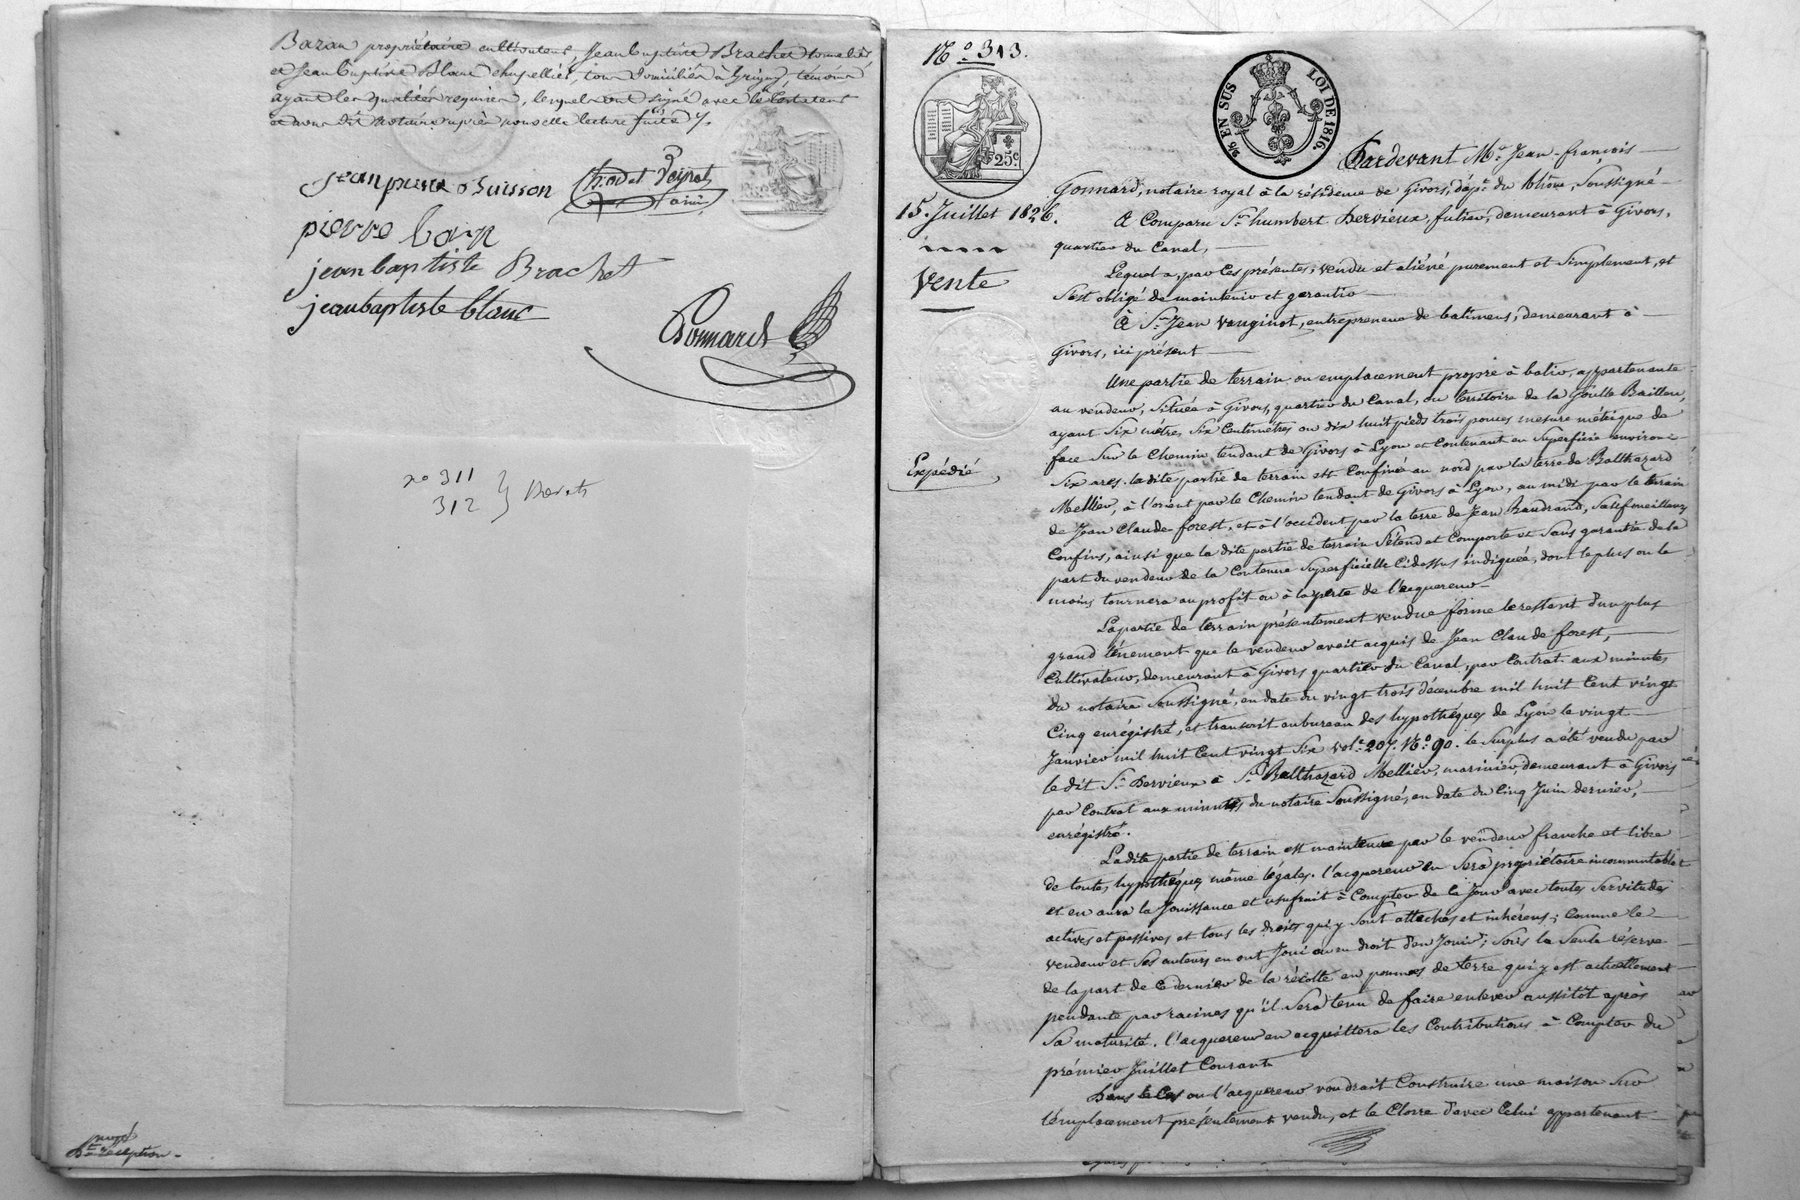 Bazan propriétaire cultivateur, Jean Baptiste Brachet
et Jean Baptiste Blanc chapellier, tous domiciliés à Grigny, témoins
ayant les qualités requises, lesquels ont signé avec le testateur
et nous dit notaire après nouvelle lecture faite
jean pierre Buisson
pierre
jean baptiste Brachet
jean baptiste blanc
Gonnard
no 311
312
Bon réception
No 313.
25c.
2/6 EN SUS LOI DE 1816.
15. Juillet 1826.
Vente
Expédié
Pardevant Me. Jean-françois
Gonnard, notaire royal à la résidence de Givors, dépt. du Rhône, Soussigné
A Comparu Sr. humbert Dervieux, demeurant à Givors,
quartier du Canal,
Lequel a, par ces présentes, vendu et aliéné purement et Simplement, et
s'est obligé de maintenir et garantir
A Sr. Jean Vanginot, entrepreneur de batimens, demeurant à
Givors, ici présent
Une partie de terrain ou emplacement propre à batir, appartenante
au vendeur, Située à Givors, quartier du Canal, au territoire de la Goulle Baillou,
ayant Six mètres Six Centimètres ou dix huit pieds trois pouces mesure métrique de
face Sur le Chemin tendant de Givors à Lyon et Contenant en Superficie environ
Six ares. la dite partie de terrain est Confinée au nord par la terre de Balthazard
Mellier, à l'orient par le Chemin tendant de Givors à Lyon, au midi par le terrain
de Jean Claude forest, et à l'occident par la terre de Jean Baudrand, Sauf meilleurs
Confins, ainsi que la dite partie de terrain S'étend et Comporte et Sans garantie de la
part du vendeur de la Contenue Superficielle Cidessus indiquée, dont le plus ou le
moins tournera au profit ou à la perte de l'acquereur
La partie de terrain présentement vendue forme le restant d'un plus
grand tènement que le vendeur avoit acquis de Jean Claude forest,
Cultivateur, demeurant à Givors quartier du Canal, par Contrat aux minutes
du notaire Soussigné, en date du vingt trois décembre mil huit Cent vingt
Cinq enrégistré, et transcrit au bureau des hypothéques de Lyon le vingt
Janvier mil huit Cent vingt Six vole. 207. No. 90. le Surplus a été vendu par
le dit Sr. Dervieux à Sr. Balthazard Mellier, marinier, demeurant à Givors
par Contrat aux minutes du notaire Soussigné, en date du Cinq Juin dernier,
enrégistré.
La dite partie de terrain est maintenue par le vendeur franche et libre
de toutes hypothéques même légales. l'acquereur en Sera propriétaire incommutable
et en aura la Jouissance et usufruit à Compter de Ce Jour avec toutes Servitudes
actives et passives et tous les droits qui y Sont attachés et inhérens; Comme le
vendeur et Ses auteurs en ont Joui ou eu droit d'en Jouir; Sous la Seule réserve
de la part de Ce dernier de la récolte en pommes de terre qui y est actuellement
pendante par racines qu'il Sera tenu de faire enlever aussitôt après
Sa maturité. l'acquereur en acquittera les Contributions à Compter du
prémier Juillet Courant
Dans le Cas ou l'acquereur voudrait Construire une maison Sur
l'emplacement présentement vendu, et le Clorre d'avec Celui appartenant